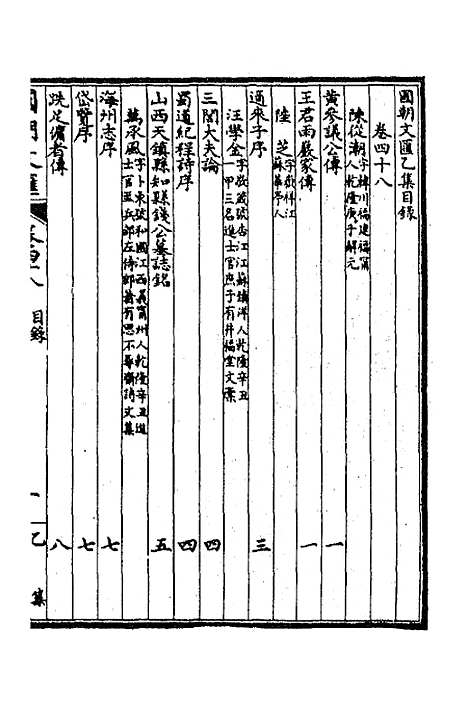 國朝文匯乙集目錄
卷四十八
陳從潮字緯川福建福甯人乾隆庚子解元
黄參議公傳 一
王君雨嚴家傳 一
陸芝字敬祥江蘇華亭人
過來子序 三
汪學金字敬箴號杏江江蘇鎮洋人乾隆辛丑一甲三名進士官庶子有井福堂文稾
三閭大夫論 四
蜀道紀程詩序 四
山西天鎮縣知縣錢公墓誌銘 五
萬承風字卜東號和圃江西義甯州人乾隆辛丑進士官至兵部左侍郎著有思不辱齋詩文集
海州志序 七
岱覽序 七
跣足傭者傳 八
國朝文匯 卷四十八 目錄 一 乙集